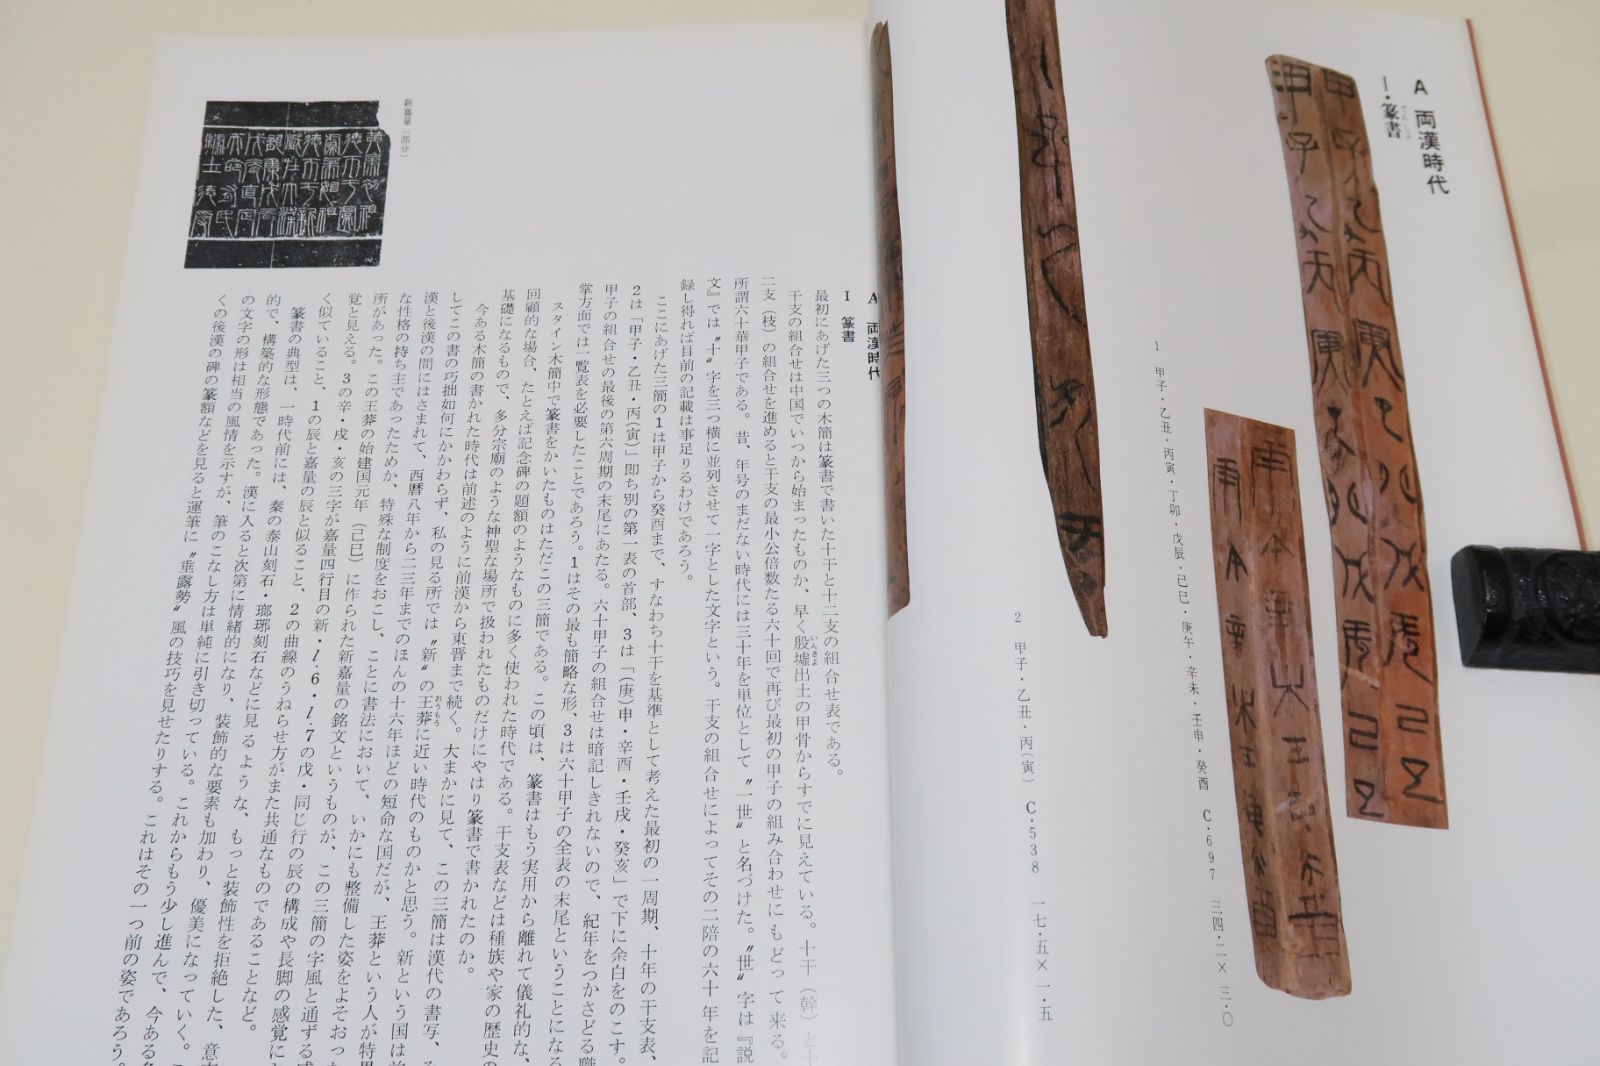 A 両漢時代
1・篆書
1 甲子・乙丑・丙寅・丁卯・戊辰・己巳・庚午・辛未・壬申・癸酉 C・697 三四・二×三・〇
2 甲子・乙丑・丙(寅) C・538 一七・五×一・五
A 両漢時代
I 篆書
最初にあげた三つの木簡は篆書で書いた十干と十二支の組合せ表である。
干支の組合せは中国でいつから始まったものか、早く殷墟出土の甲骨からすでに見えている。十干(幹)と十
二支(枝)の組合せを進めると干支の最小公倍数たる六十回で再び最初の甲子の組み合わせにもどって来る。
所謂六十華甲子である。昔、年号のまだない時代には三十年を単位として〝一世〟と名づけた。〝世〟字は『説
文』では〝十〟字を三つ横に並列させて一字とした文字という。干支の組合せによってその二陪の六十年を記
録し得れば目前の記載は事足りるわけであろう。
ここにあげた三簡の1は甲子から癸酉まで、すなわち十干を基準として考えた最初の一周期、十年の干支表、
2は「甲子・乙丑・丙(寅)」即ち別の第一表の首部、3は「(庚)申・辛酉・壬戌・癸亥」で下に余白をのこす。
甲子の組合せの最後の第六周期の末尾にあたる。六十甲子の組合せは暗記しきれないので、紀年をつかさどる職
掌方面では一覧表を必要したことであろう。1はその最も簡略な形、3は六十甲子の全表の末尾ということになる
スタイン木簡中で篆書をかいたものはただこの三簡である。この頃は、篆書はもう実用から離れて儀礼的な、
回顧的な場合、たとえば記念碑の題額のようなものに多く使われた時代である。干支表などは種族や家の歴史の
基礎になるもので、多分宗廟のような神聖な場所で扱われたものだけにやはり篆書で書かれたのか。
今ある木簡の書かれた時代は前述のように前漢から東晋まで続く。大まかに見て、この三簡は漢代の書写、
してこの書の巧拙如何にかかわらず、私の見る所では〝新〟の王莽に近い時代のものかと思う。新という国は
漢と後漢の間にはさまれて、西暦八年から二三年までのほんの十六年ほどの短命な国だが、王莽という人が特異
な性格の持ち主であったためか、特殊な制度をおこし、ことに書法において、いかにも整備した姿をよそおった
所があった。この王莽の始建国元年(己巳)に作られた新嘉量の銘文というものが、この三簡の字風と通ずる
覚と見える。3の辛・戌・亥の三字が嘉量四行目の新・l・6・l・7の戊・同じ行の辰の構成や長脚の感覚に
く似ていること、1の辰と嘉量の辰と似ること、2の曲線のうねらせ方がまた共通なものであることなど。
篆書の典型は、一時代前には、秦の泰山刻石・瑯琊刻石などに見るような、もっと装飾性を拒絶した、意
的で、構築的な形態であった。漢に入ると次第に情緒的になり、装飾的な要素も加わり、優美になっていく。
の文字の形は相当の風情を示すが、筆のこなし方は単純に引き切っている。これからもう少し進んで、今ある
くの後漢の碑の篆額などを見ると運筆に〝垂露勢〟風の技巧を見せたりする。これはその一つ前の姿であろう。
新嘉量(部分)